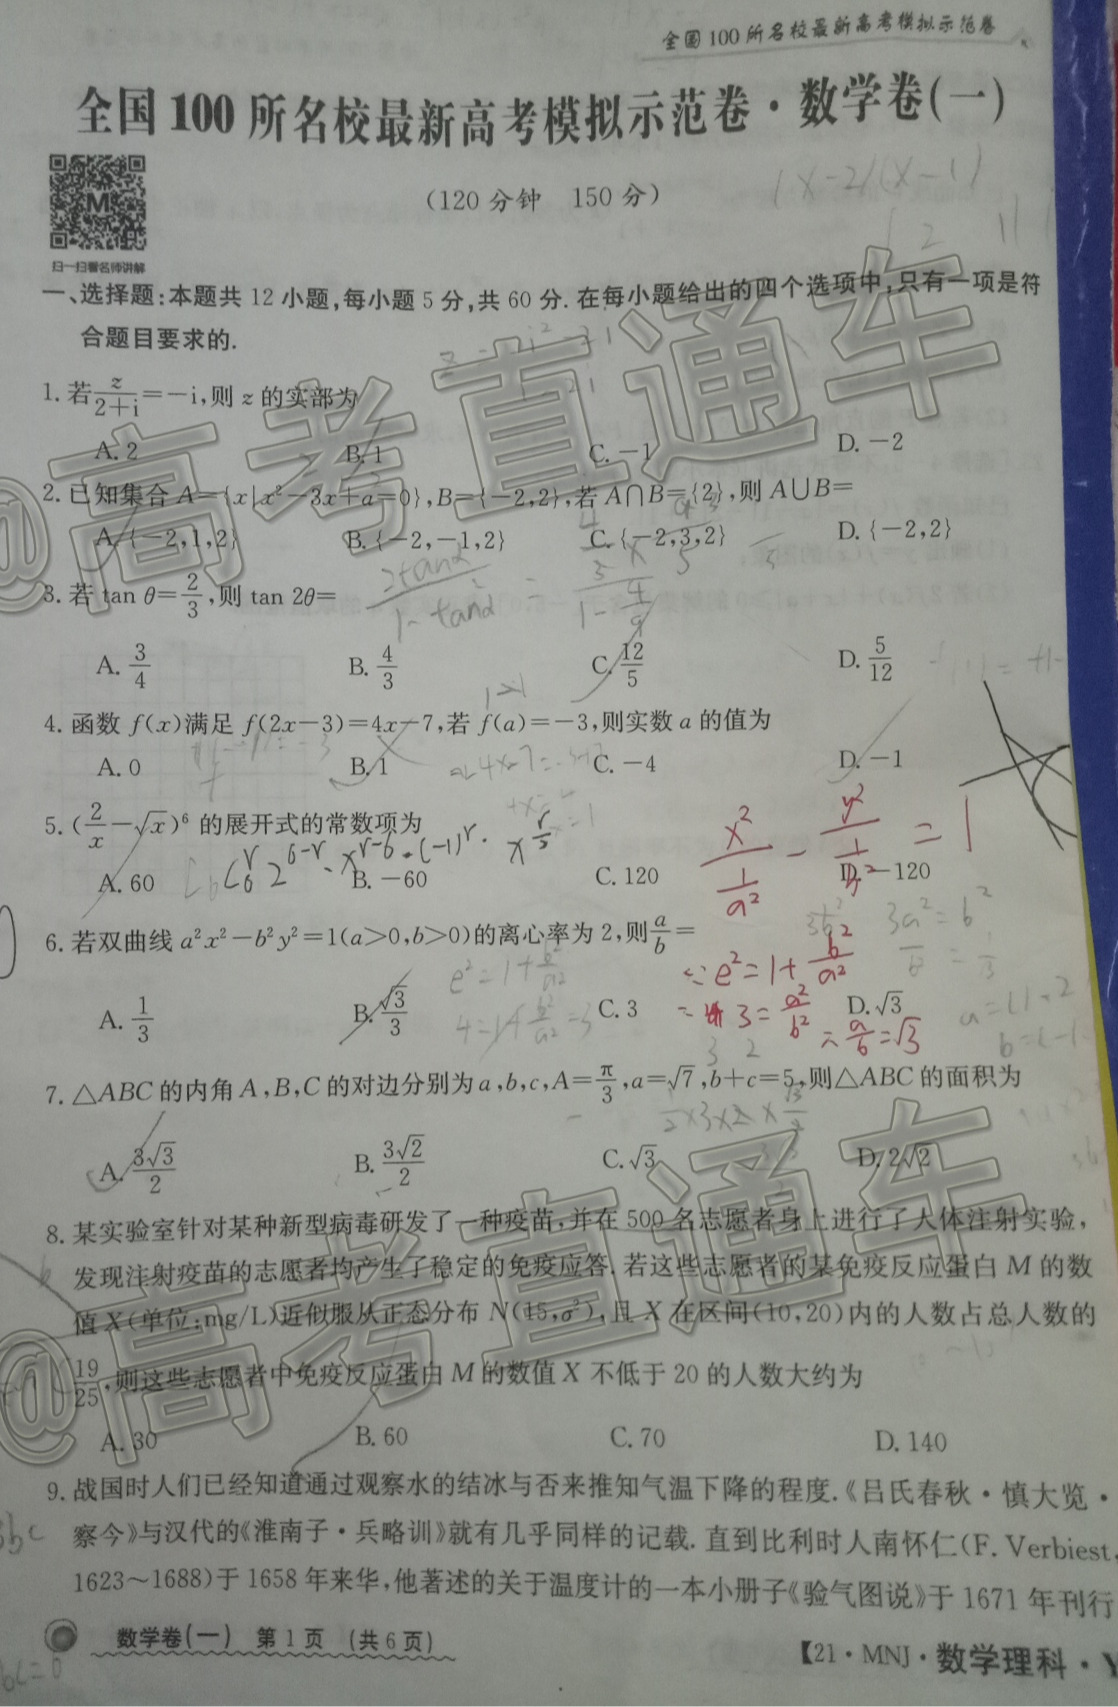 全国100所名校最新高考模拟示范卷
全国100所名校最新高考模拟示范卷·数学卷(一)
(120分钟 150分)
扫一扫看名师讲解
一、选择题:本题共12小题,每小题5分,共60分.在每小题给出的四个选项中,只有一项是符
合题目要求的.
1.若z/(2+i)=-i,则z的实部为
A.2 B.1 C.-1 D.-2
2.已知集合A={x|x²-3x+a=0},B={-2,2},若A∩B={2},则A∪B=
A.{-2,1,2} B.{-2,-1,2} C.{-2,3,2} D.{-2,2}
3.若tan θ=2/3,则tan 2θ=
A.3/4 B.4/3 C.12/5 D.5/12
4.函数f(x)满足f(2x-3)=4x-7,若f(a)=-3,则实数a的值为
A.0 B.1 C.-4 D.-1
5.(2/x-√x)⁶的展开式的常数项为
A.60 B.-60 C.120 D.-120
x²/(1/a²) - y²/(1/b²) = 1
6.若双曲线a²x²-b²y²=1(a>0,b>0)的离心率为2,则a/b=
∵e²=1+b²/a²
A.1/3 B.√3/3 C.3 D.√3
3=a²/b² ∴a/b=√3
7.△ABC的内角A,B,C的对边分别为a,b,c,A=π/3,a=√7,b+c=5,则△ABC的面积为
A.3√3/2 B.3√2/2 C.√3 D.2√2
8.某实验室针对某种新型病毒研发了一种疫苗,并在500名志愿者身上进行了人体注射实验,
发现注射疫苗的志愿者均产生了稳定的免疫应答.若这些志愿者的某免疫反应蛋白M的数
值X(单位:mg/L)近似服从正态分布N(15,σ²),且X在区间(10,20)内的人数占总人数的
19/25,则这些志愿者中免疫反应蛋白M的数值X不低于20的人数大约为
A.30 B.60 C.70 D.140
9.战国时人们已经知道通过观察水的结冰与否来推知气温下降的程度.《吕氏春秋·慎大览·
察今》与汉代的《淮南子·兵略训》就有几乎同样的记载.直到比利时人南怀仁(F. Verbiest,
1623~1688)于1658年来华,他著述的关于温度计的一本小册子《验气图说》于1671年刊行
数学卷(一) 第1页 (共6页)
【21·MNJ·数学理科·Y
@高考直通车
@高考直通车